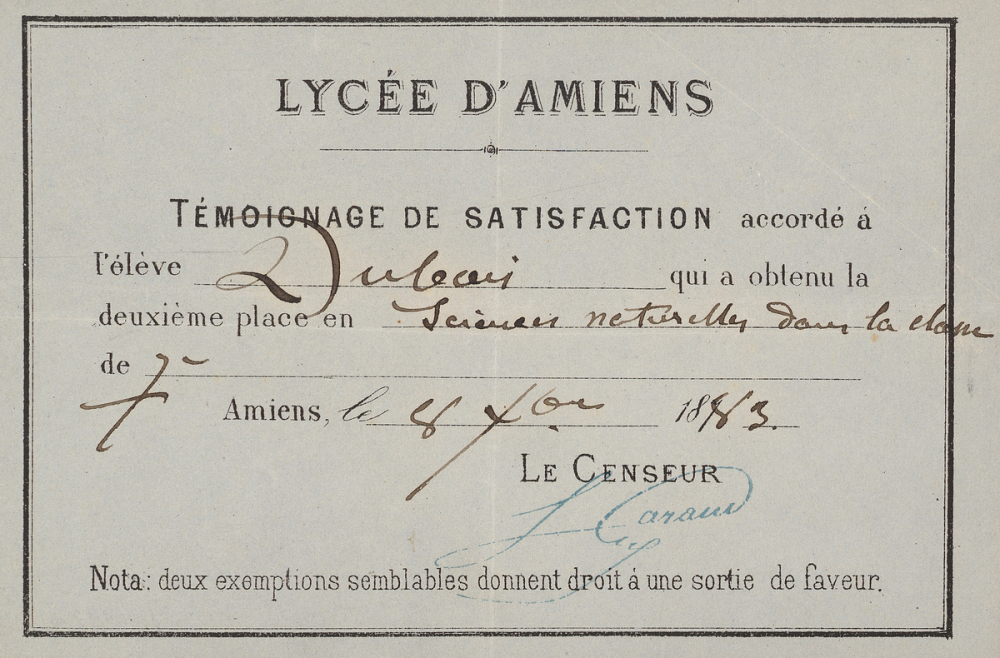 LYCÉE D'AMIENS
TÉMOIGNAGE DE SATISFACTION accordé á
l'élève Dubois qui a obtenu la
deuxième place en Sciences naturelles dans la classe
de 7e
Amiens, le 8 Xbre 1883.
LE CENSEUR
Nota: deux exemptions semblables donnent droit á une sortie de faveur.